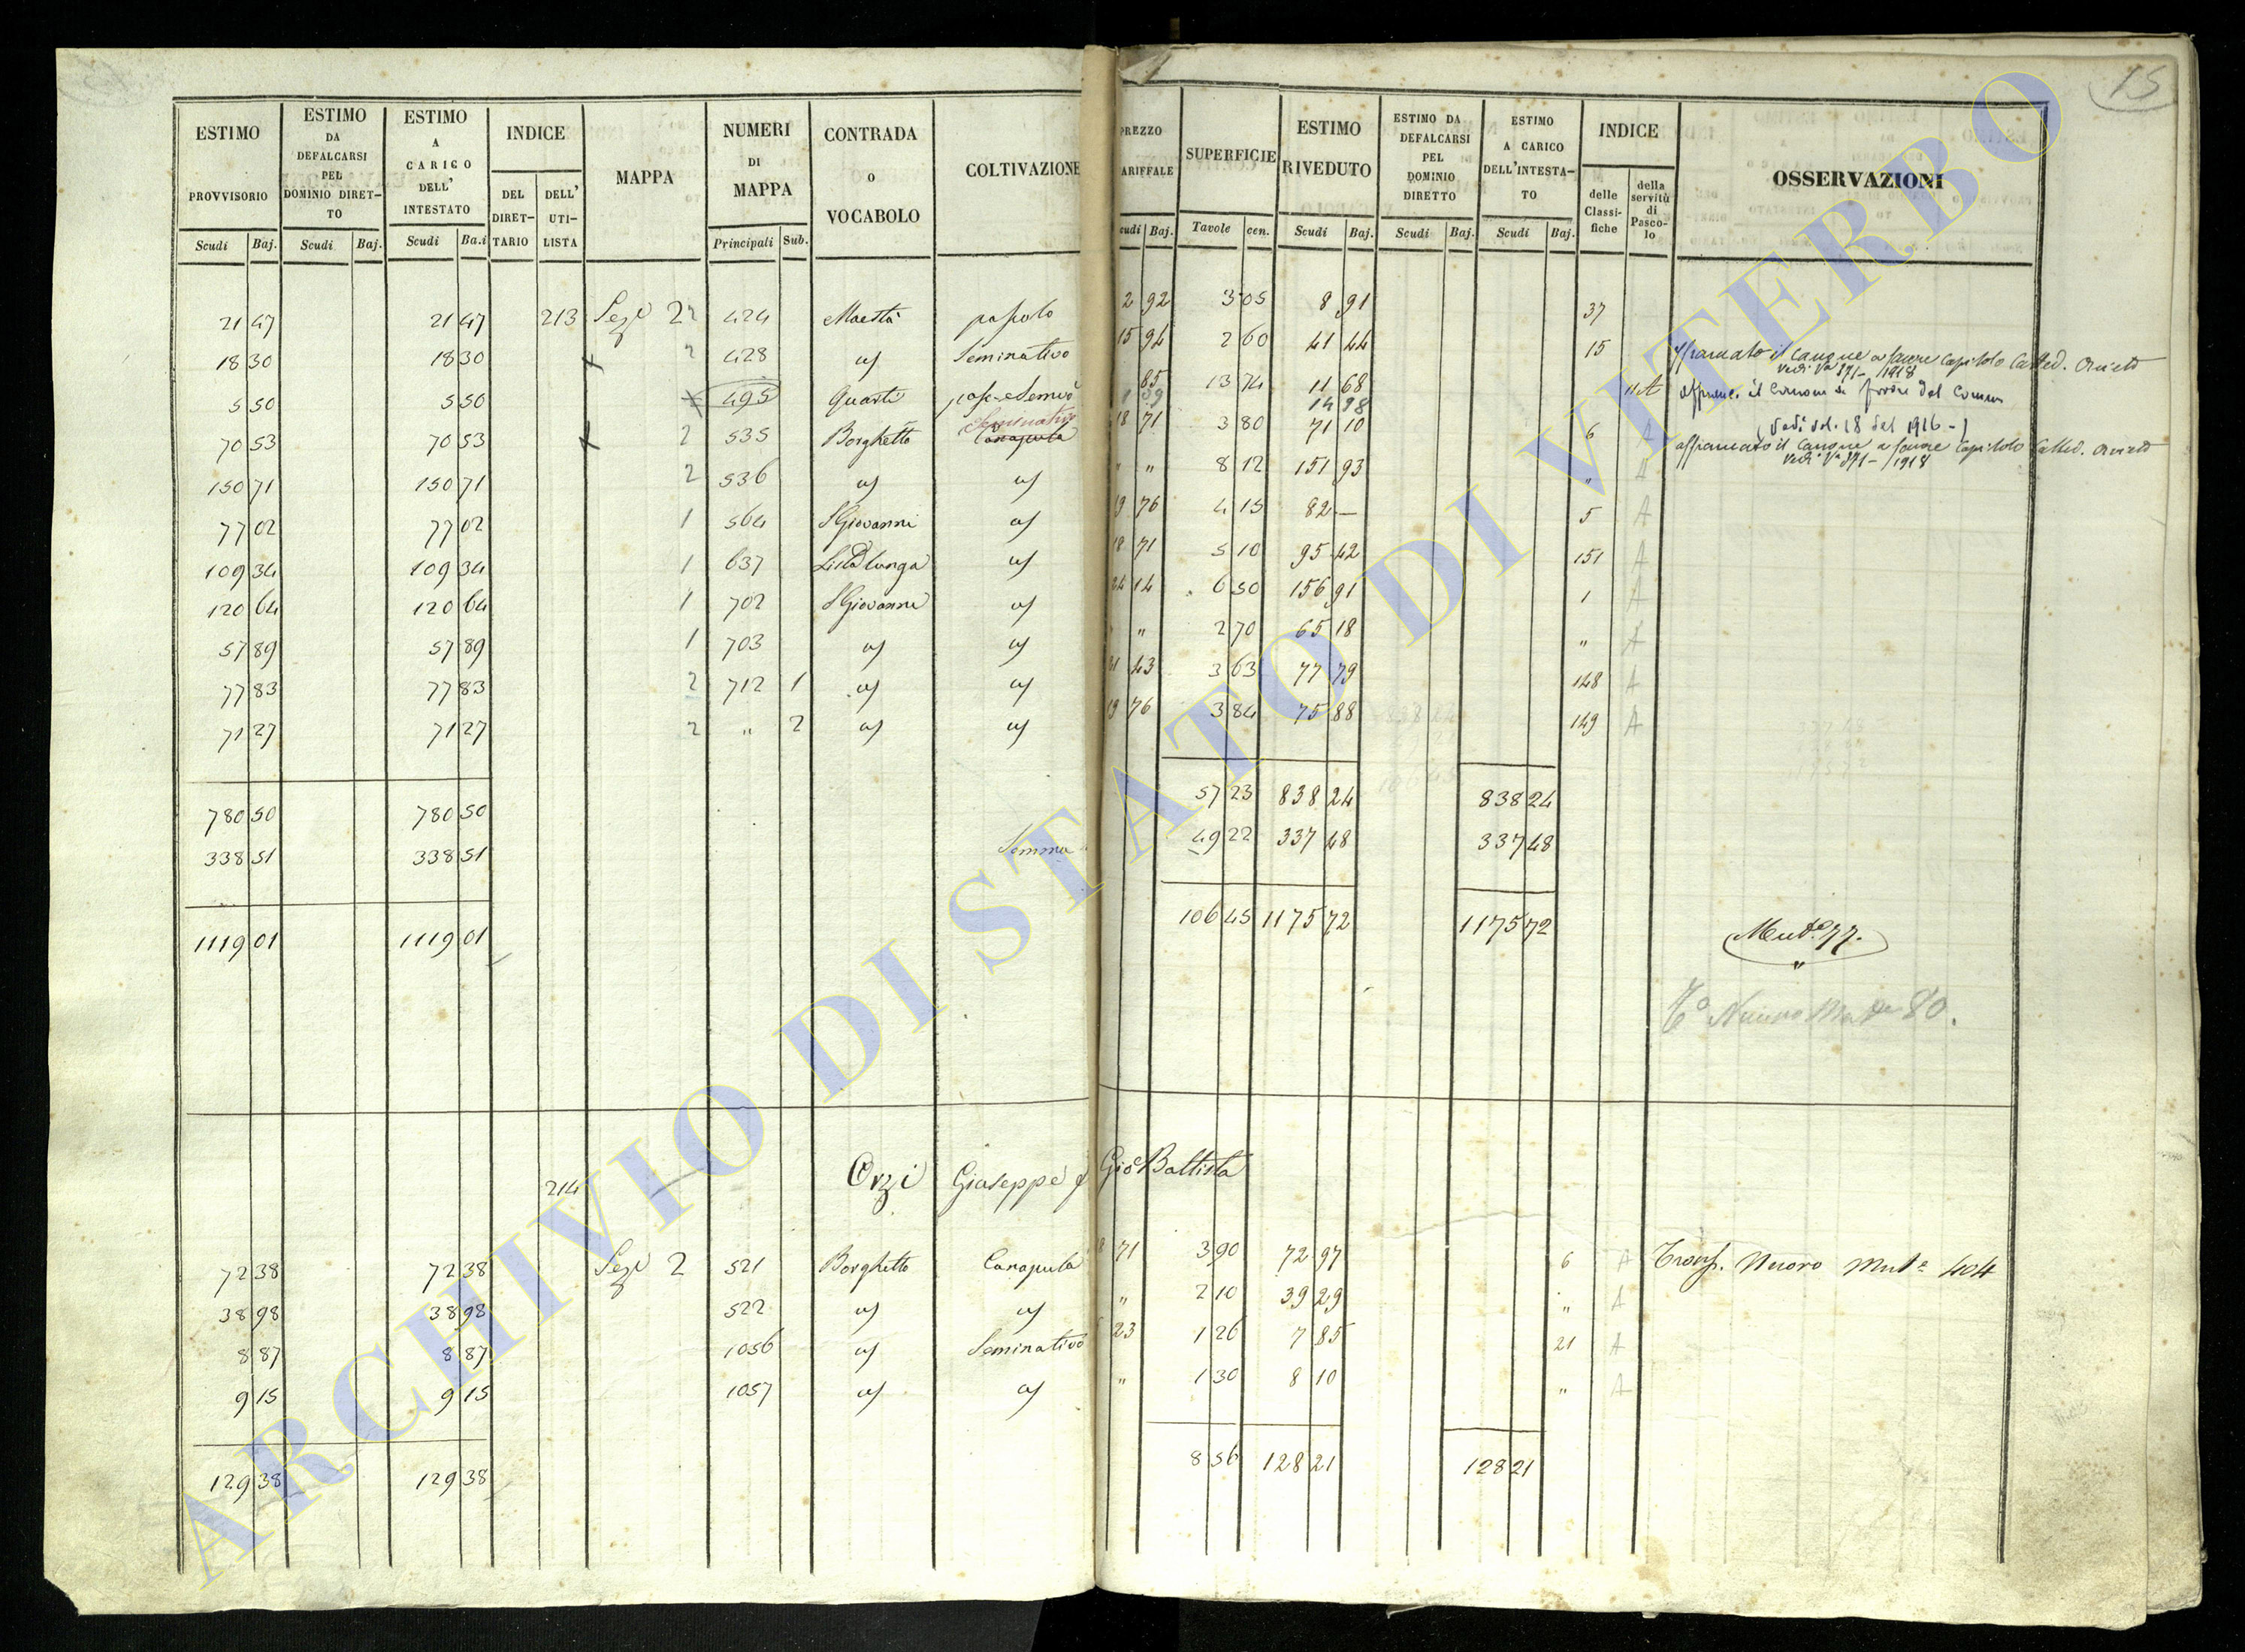 15
ESTIMO PROVVISORIO Scudi Baj.
ESTIMO DA DEFALCARSI PEL DOMINIO DIRETTO Scudi Baj.
ESTIMO A CARICO DELL' INTESTATO Scudi Ba.i
INDICE DEL DIRETTARIO DELL' UTILISTA
MAPPA
NUMERI DI MAPPA Principali Sub.
CONTRADA O VOCABOLO
COLTIVAZIONE
PREZZO ARIFFALE cudi Baj.
SUPERFICIE Tavole cen.
ESTIMO RIVEDUTO Scudi Baj.
ESTIMO DA DEFALCARSI PEL DOMINIO DIRETTO Scudi Baj.
ESTIMO A CARICO DELL'INTESTATO Scudi Baj.
INDICE delle Classifiche della servitù di Pascolo
OSSERVAZIONI
21 47 21 47 213 Sez.e 2 2 424 Maestà pascolo 2 92 3 05 8 91 37
18 30 18 30 x 2 428 " Seminativo 15 94 2 60 41 44 15 affrancato il canone a favore Capitolo Catted. Orvieto
vedi Va 371 - /1918
5 50 5 50 x 495 Quarti 85 13 74 11 68 11 A affranc. il Canone a favore del Comune
1 09 14 98
(Vedi vol. 18 del 1916 -)
70 53 70 53 x 2 535 Borghetto Seminativo Canapula 18 71 3 80 71 10 6 A affrancato il Canone a favore Capitolo Catted. Orvieto
vedi Va 371 - /1918
150 71 150 71 2 536 " " " " 8 12 151 93 " A
77 02 77 02 1 564 S Giovanni " 19 76 4 15 82 — 5 A
109 34 109 34 1 637 " 18 71 5 10 95 42 151 A
120 64 120 64 1 702 S Giovanni " 24 14 6 50 156 91 1 A
57 89 57 89 1 703 " " " " 2 70 65 18 " A
77 83 77 83 2 712 1 " " 21 43 3 63 77 79 148 A
71 27 71 27 2 " 2 " " 19 76 3 84 75 88 149 A
780 50 780 50 57 23 838 24 838 24
338 51 338 51 Somma 49 22 337 48 337 48
1119 01 1119 01 106 45 1175 72 1175 72 Mut.e 77.
To Nuovo Mut.e 80.
214 Orzi Giuseppe q Gio Battista
72 38 72 38 Sez.e 2 521 Borghetto Canapula 8 71 3 90 72 97 6 A Transf. Nuovo Mut.e 404
38 98 38 98 522 " " " 2 10 39 29 " A
8 87 8 87 1056 " Seminativo 23 1 26 7 85 21 A
9 15 9 15 1057 " " " 1 30 8 10 " A
129 38 129 38 8 56 128 21 128 21
ARCHIVIO DI STATO DI VITERBO